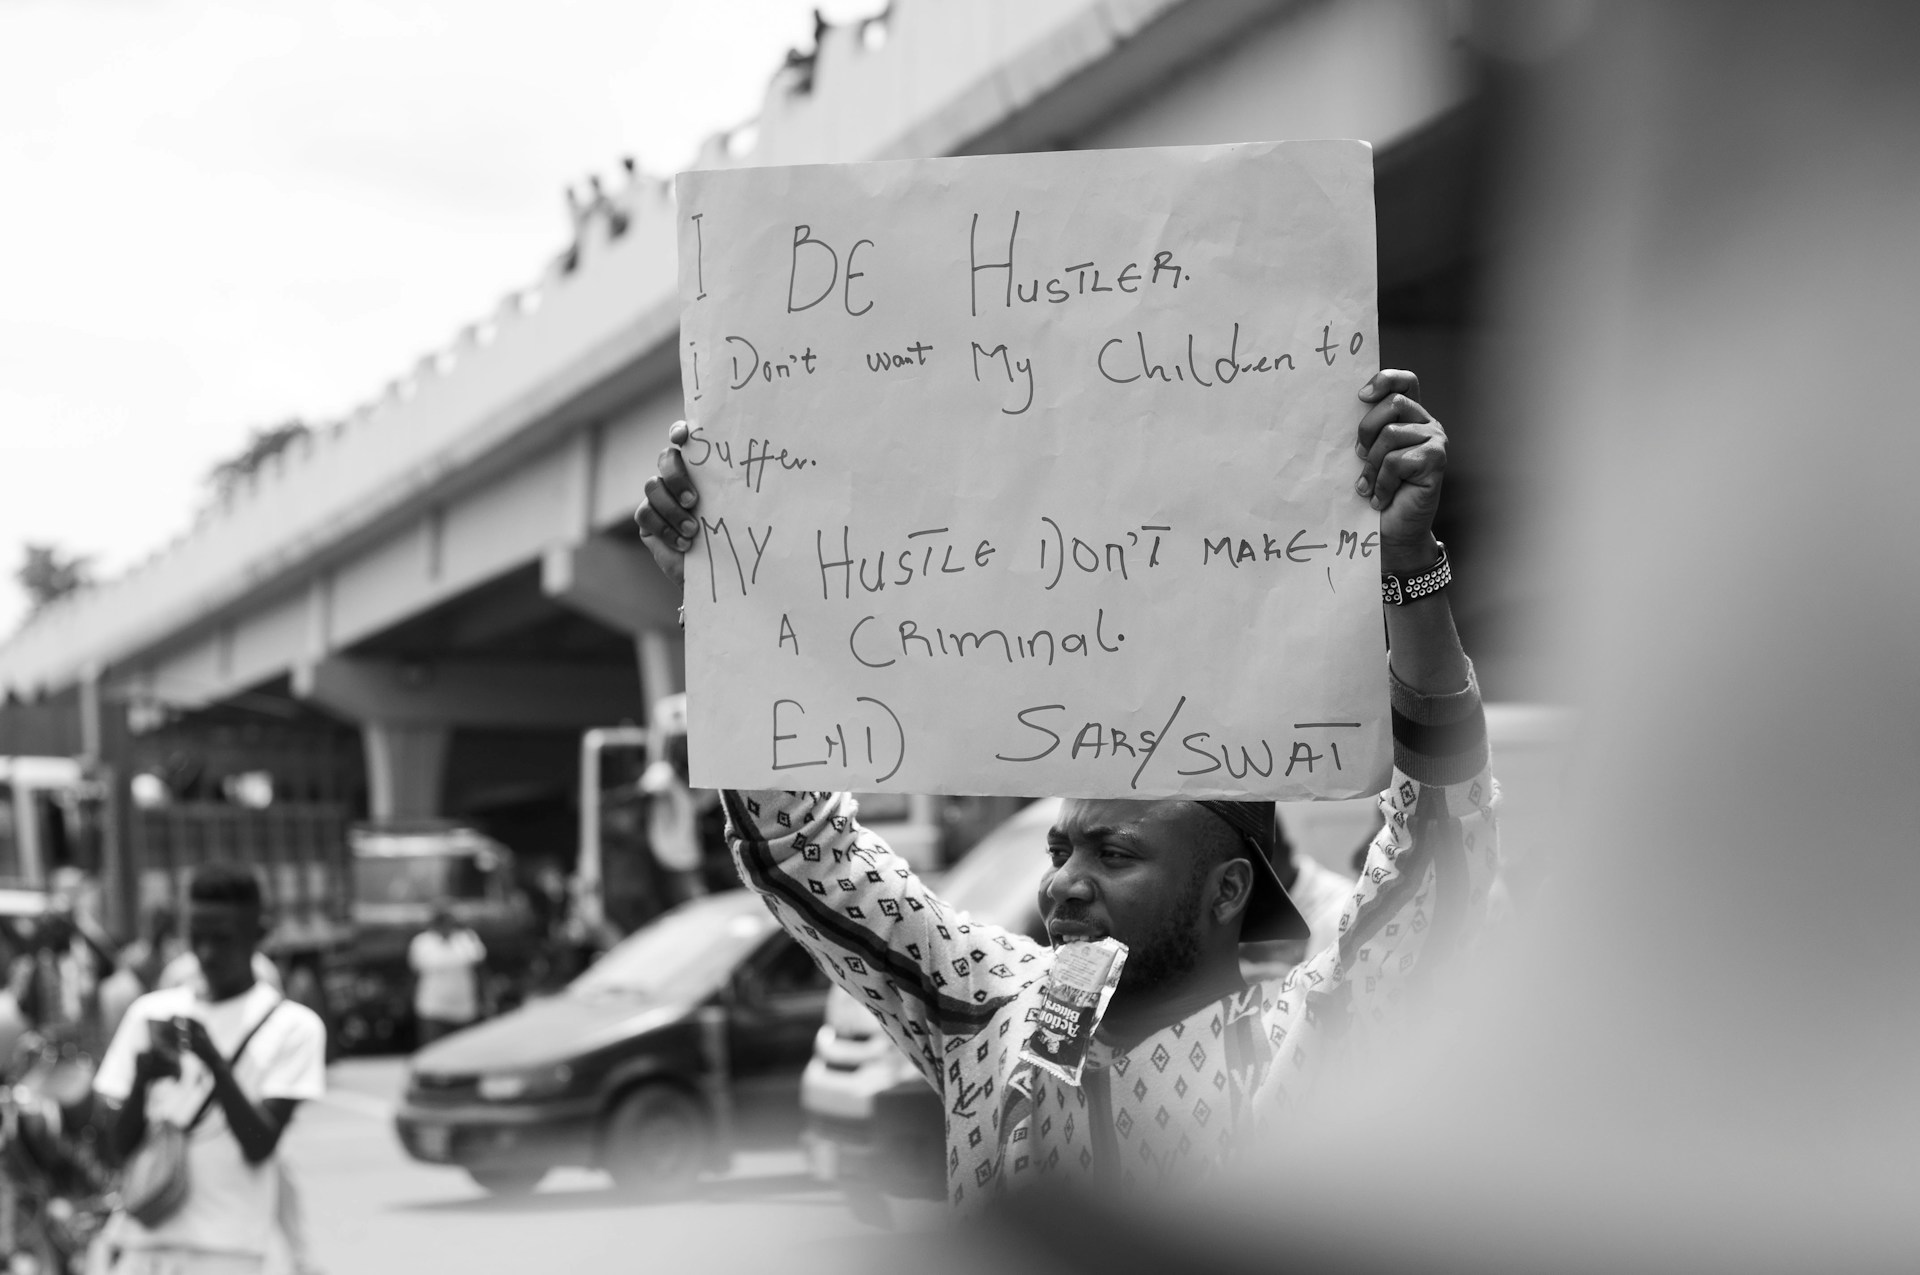 I BE HUSTLER.
i Don't want My Children to
Suffer.
MY HUSTLE DON'T MAKE ME
A CRiminal.
END SARS/SWAT
Action
Bitters